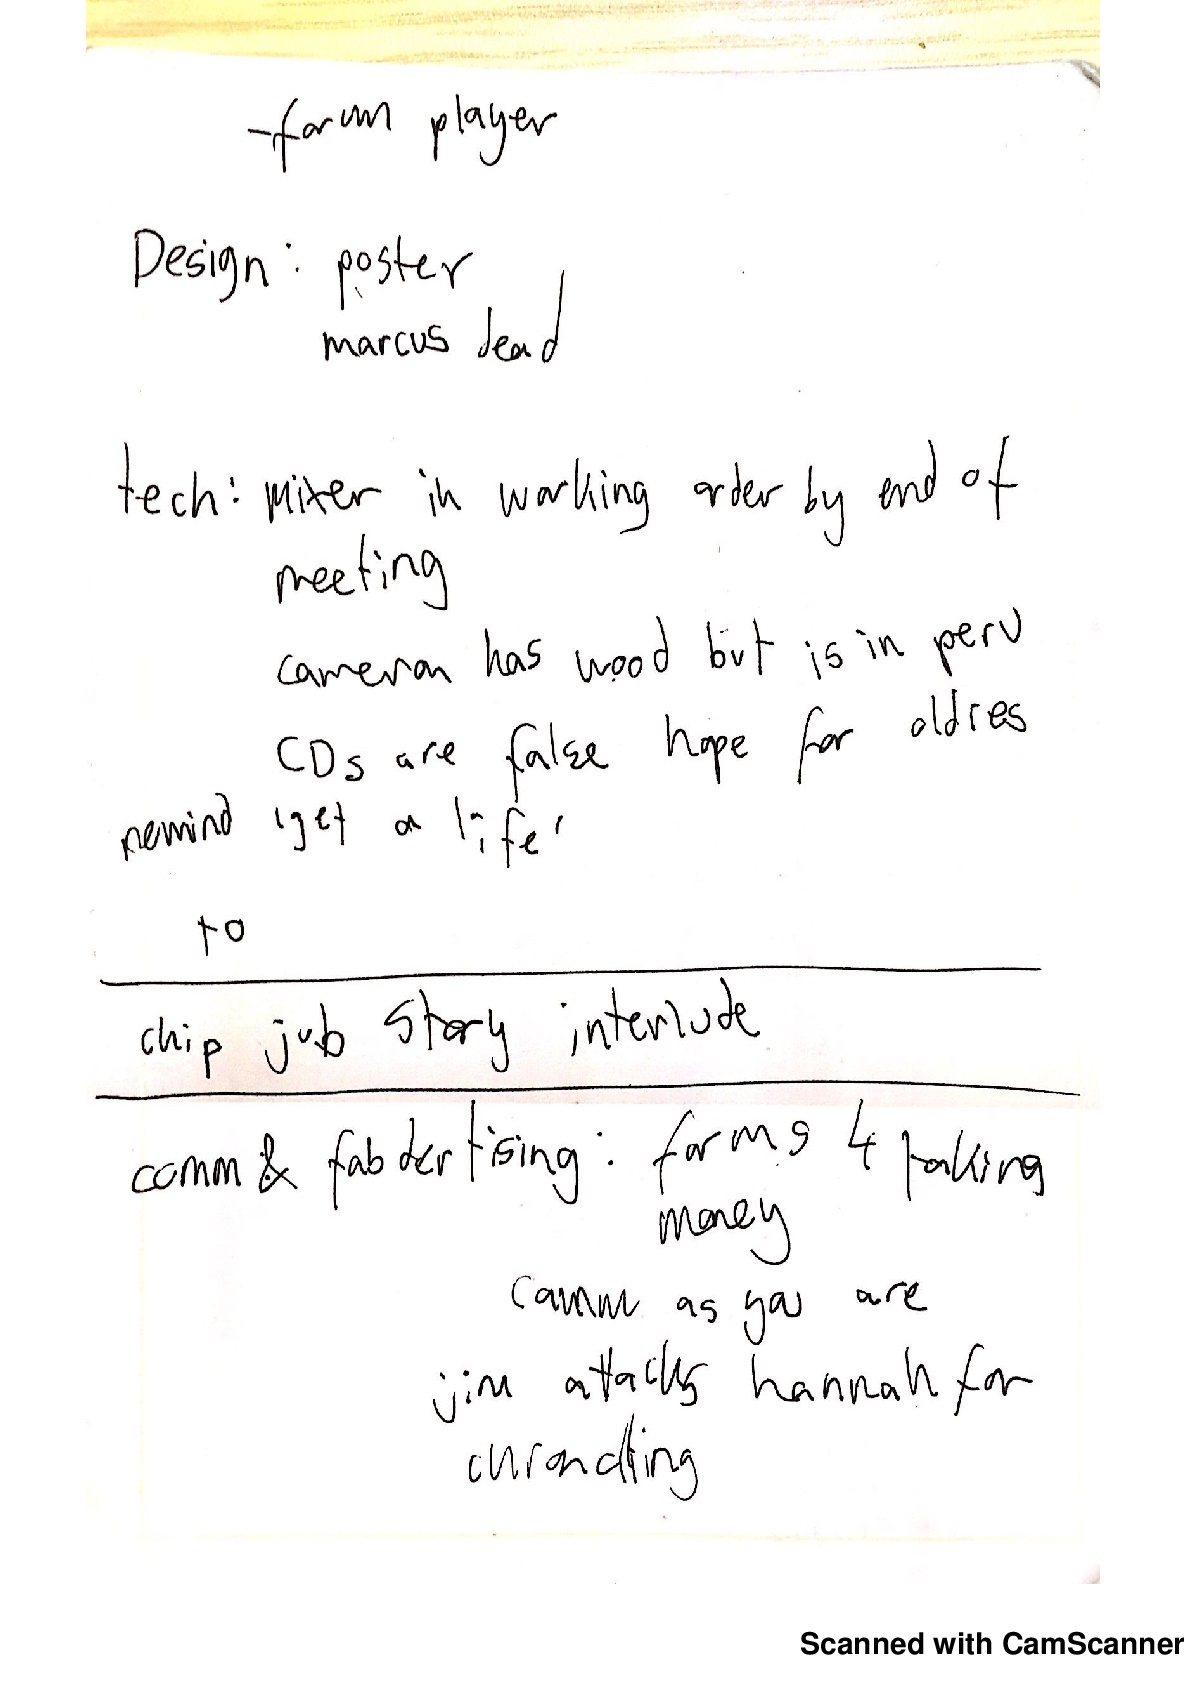 -forum player
Design: poster
marcus dead
tech: mixer in working order by end of
meeting
cameron has wood but is in peru
CDs are false hope for aldres
remind 'get a life'
to
chip jub story interlude
comm & fabdertising: forms 4 taking
money
camm as you are
jim attacks hannah for
Scanned with CamScanner